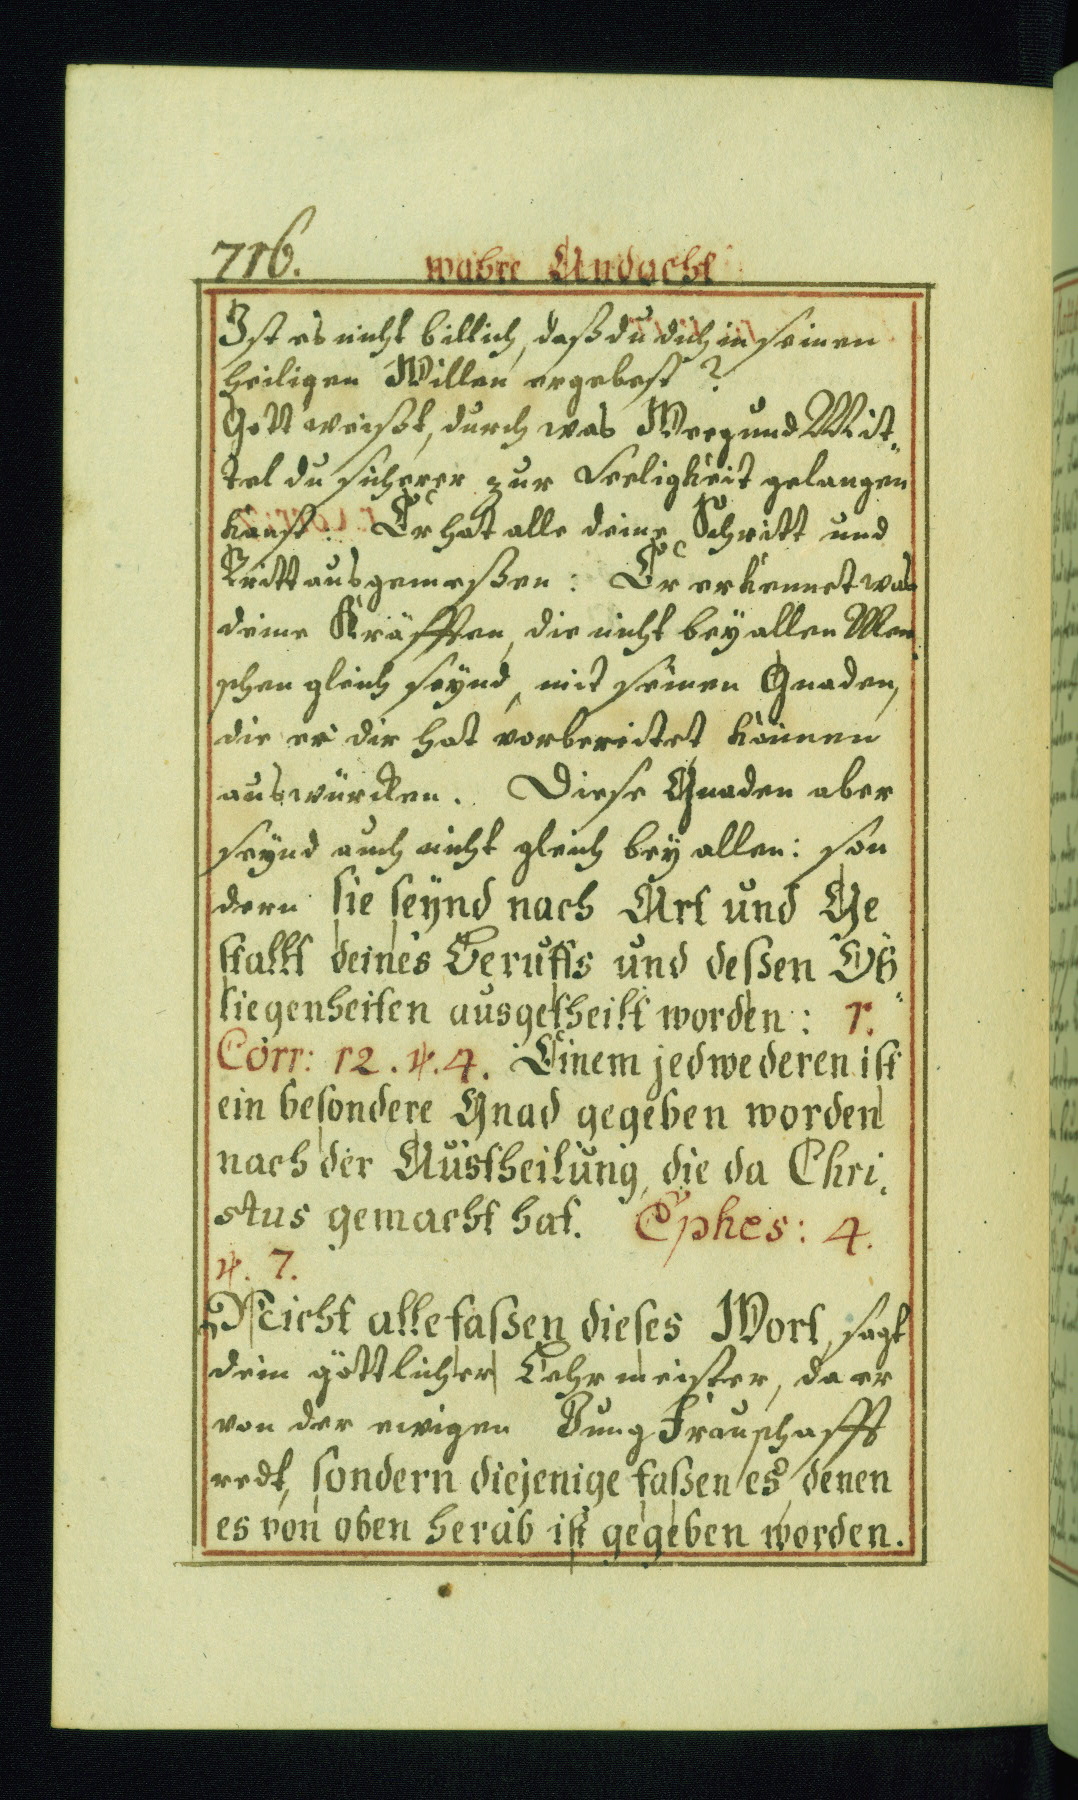 716.
wahre Andacht
Ist es nicht billich, daß du dich in seinen
heiligen Willen ergebest?
Gott weißt, durch was Weeg und Mit„
tel du sicherer zur Seeligkeit gelangen
kanst. Er hat alle deine Schritt und
Tritt ausgemeßen: Er erkennet was
deine Kräfften, die nicht bey allen Men„
schen gleich seynd, mit seinen Gnaden,
die er dir hat vorbereitet können
auswürcken. Diese Gnaden aber
seynd auch nicht gleich bey allen: son
dern sie seÿnd nach Art und Ge
stallt deines Beruffs und deßen Ob„
liegenheiten ausgetheilt worden: 1.
Corr: 12. ℣. 4. Einem jedwederen ist
ein besondere Gnad gegeben worden
nach der Austheilung, die da Chri„
stus gemacht hat. Ephes: 4.
℣. 7.
Nicht alle faßen dieses Wort, sagt
dein göttlicher Lehrmeister, da er
von der ewigen Jung Frauschafft
redt, sondern diejenige faßen es, denen
es von oben herab ist gegeben worden.